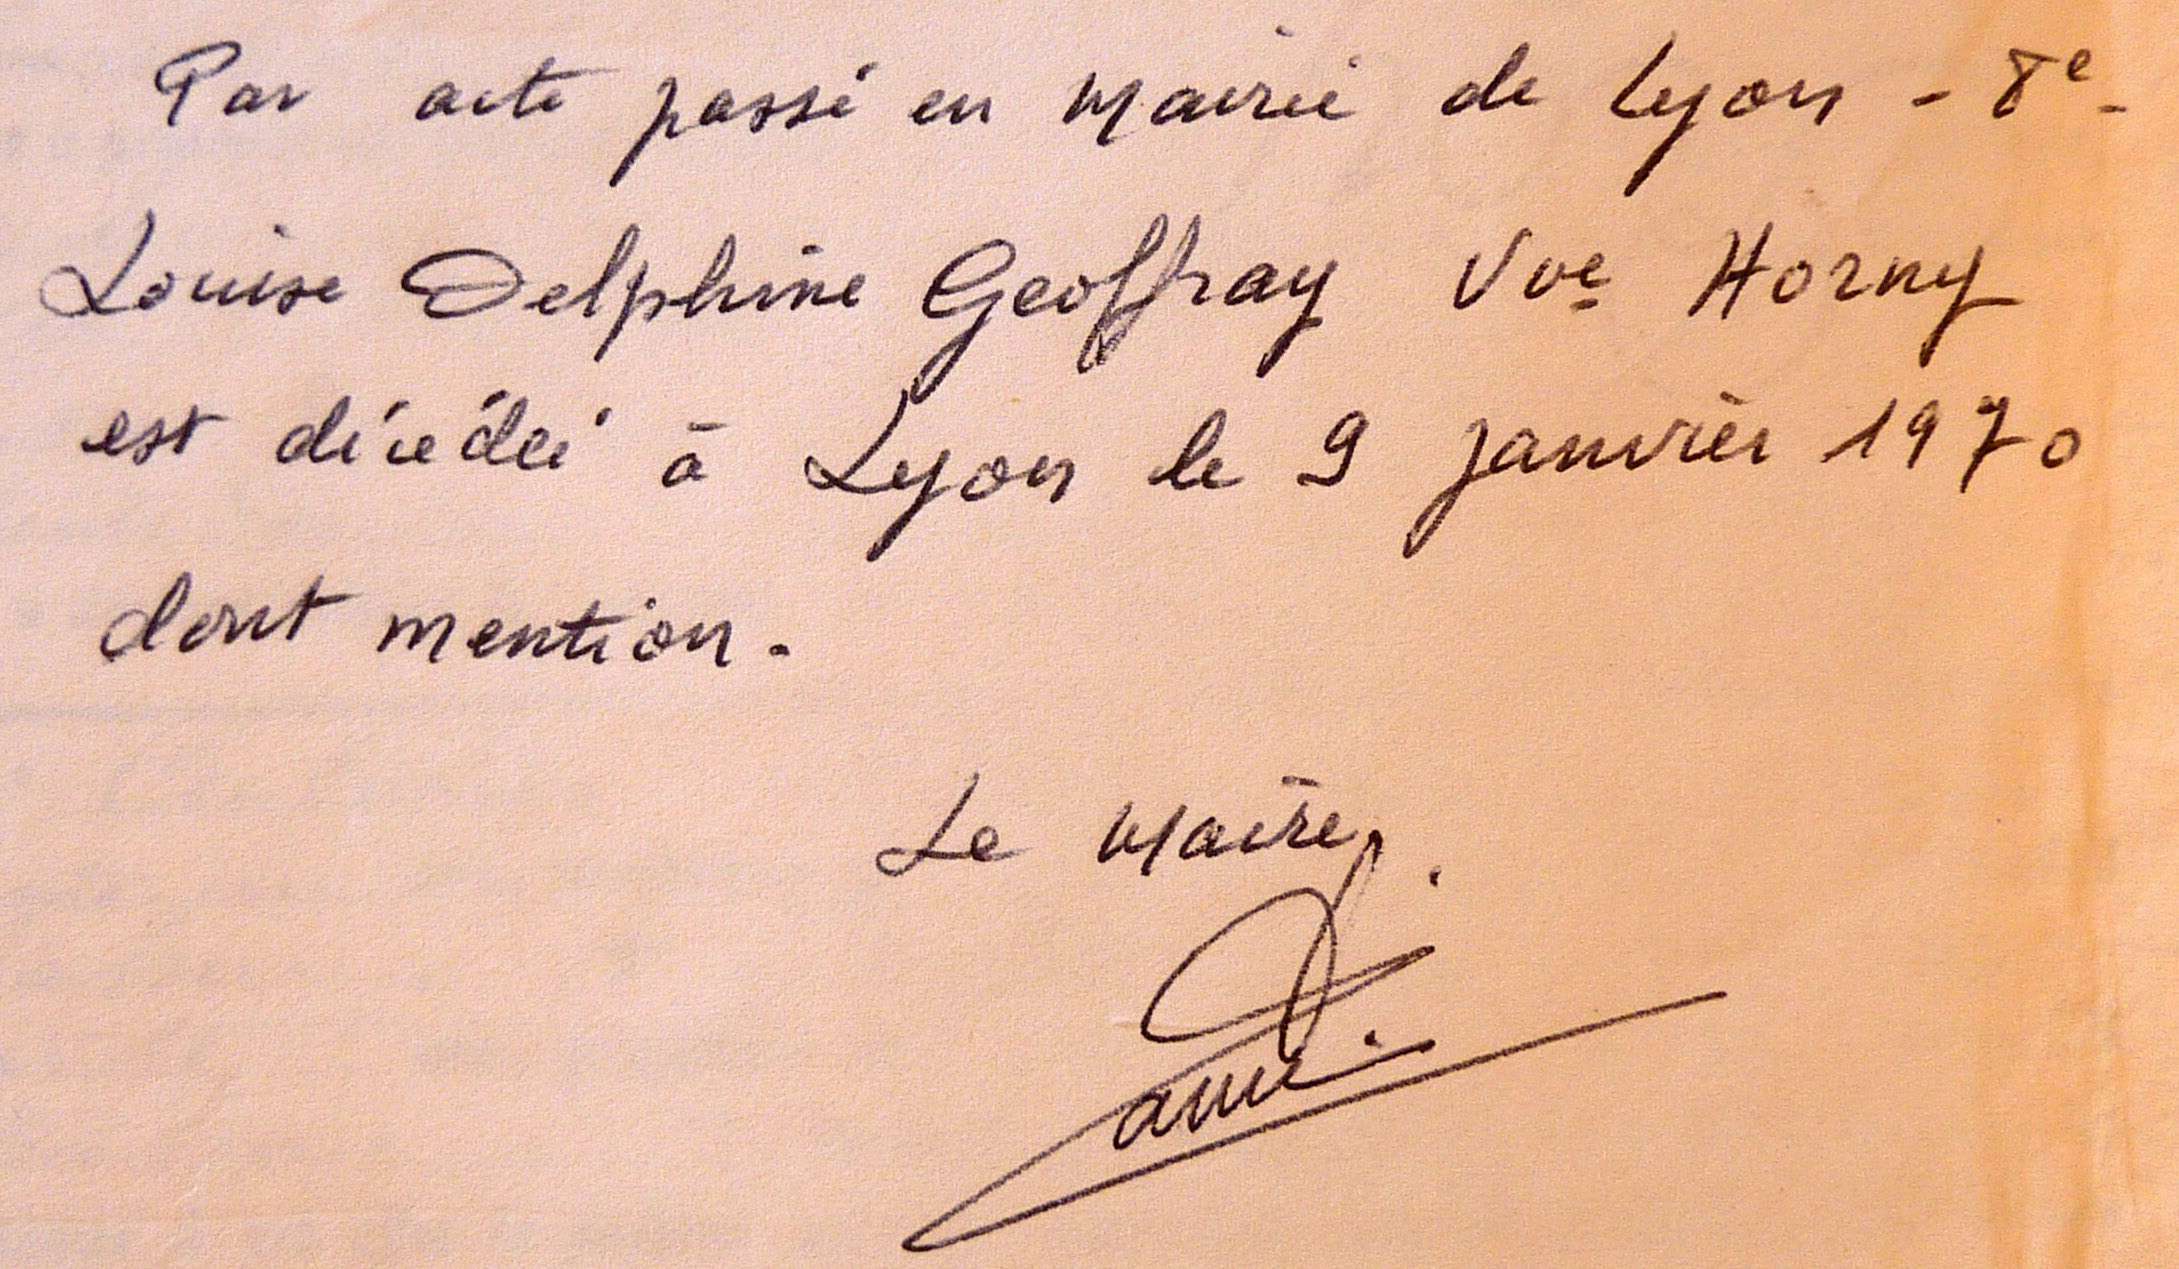 Par acte passé en Mairie de Lyon - 8e -
Louise Delphine Geoffray Vve Horny
est décédée à Lyon le 9 janvier 1970
dont mention.
Le Maire,